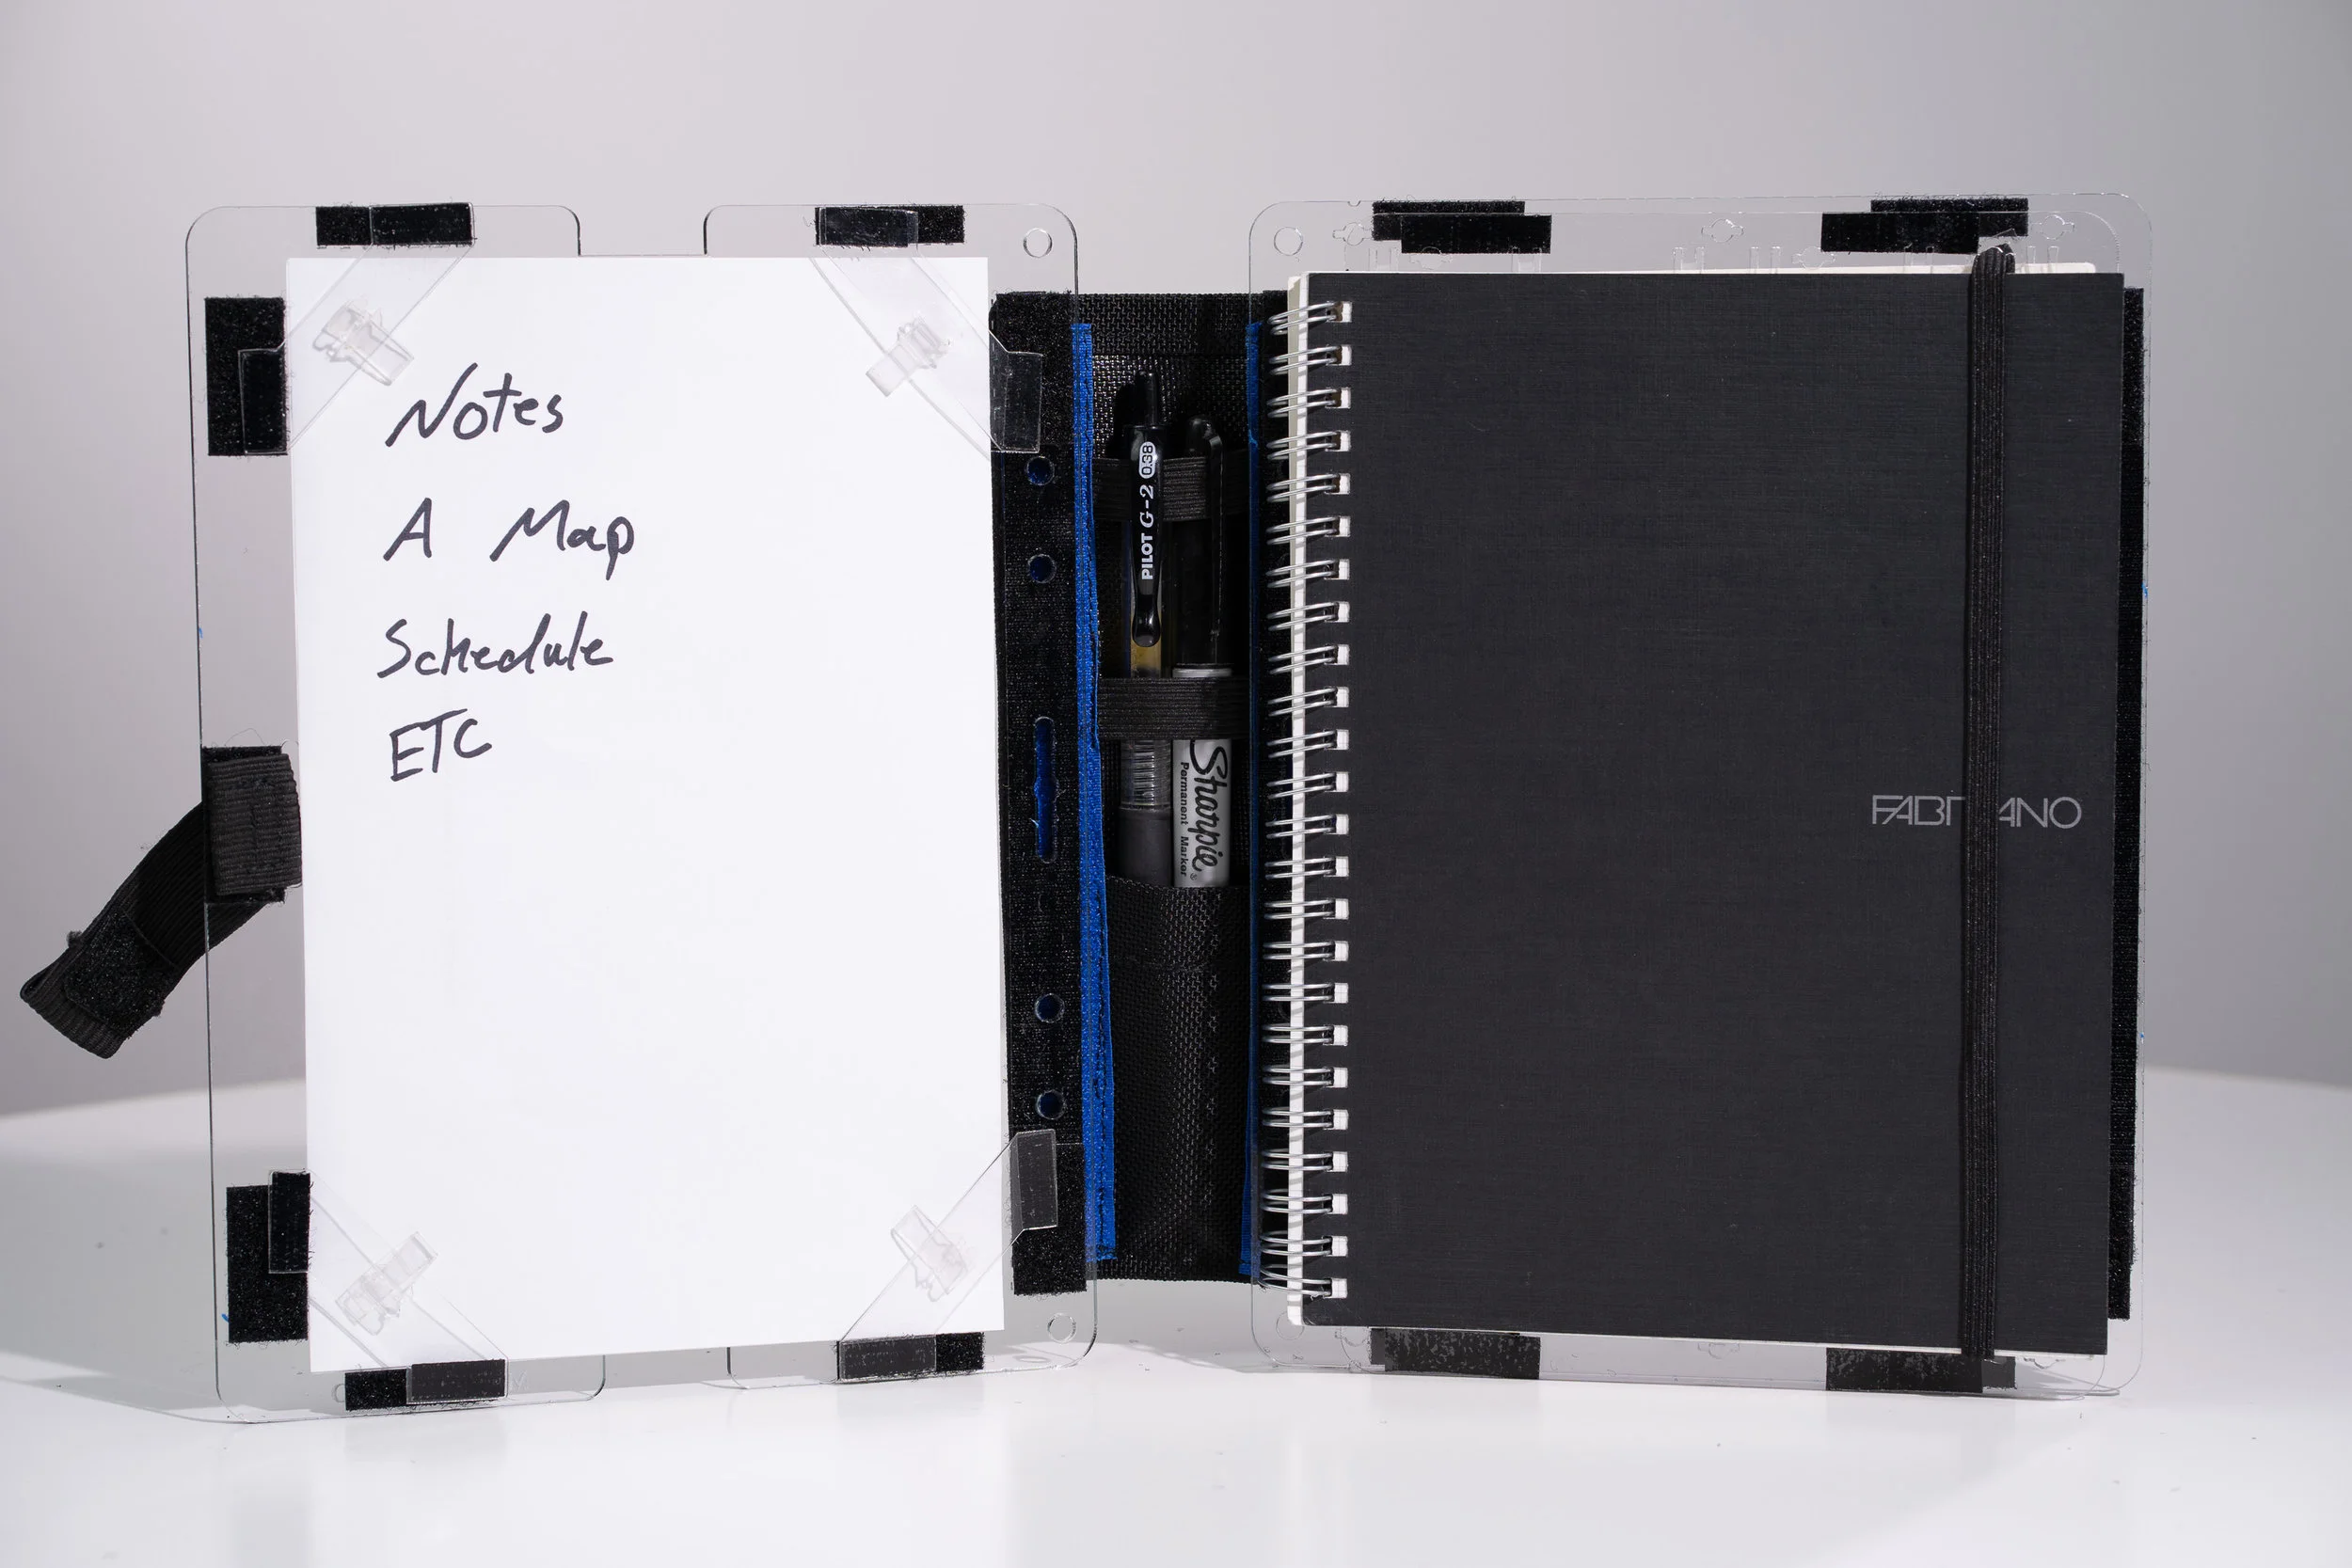 Notes
A Map
Schedule
ETC
PILOT G-2 038
Sharpie
Permanent Marker